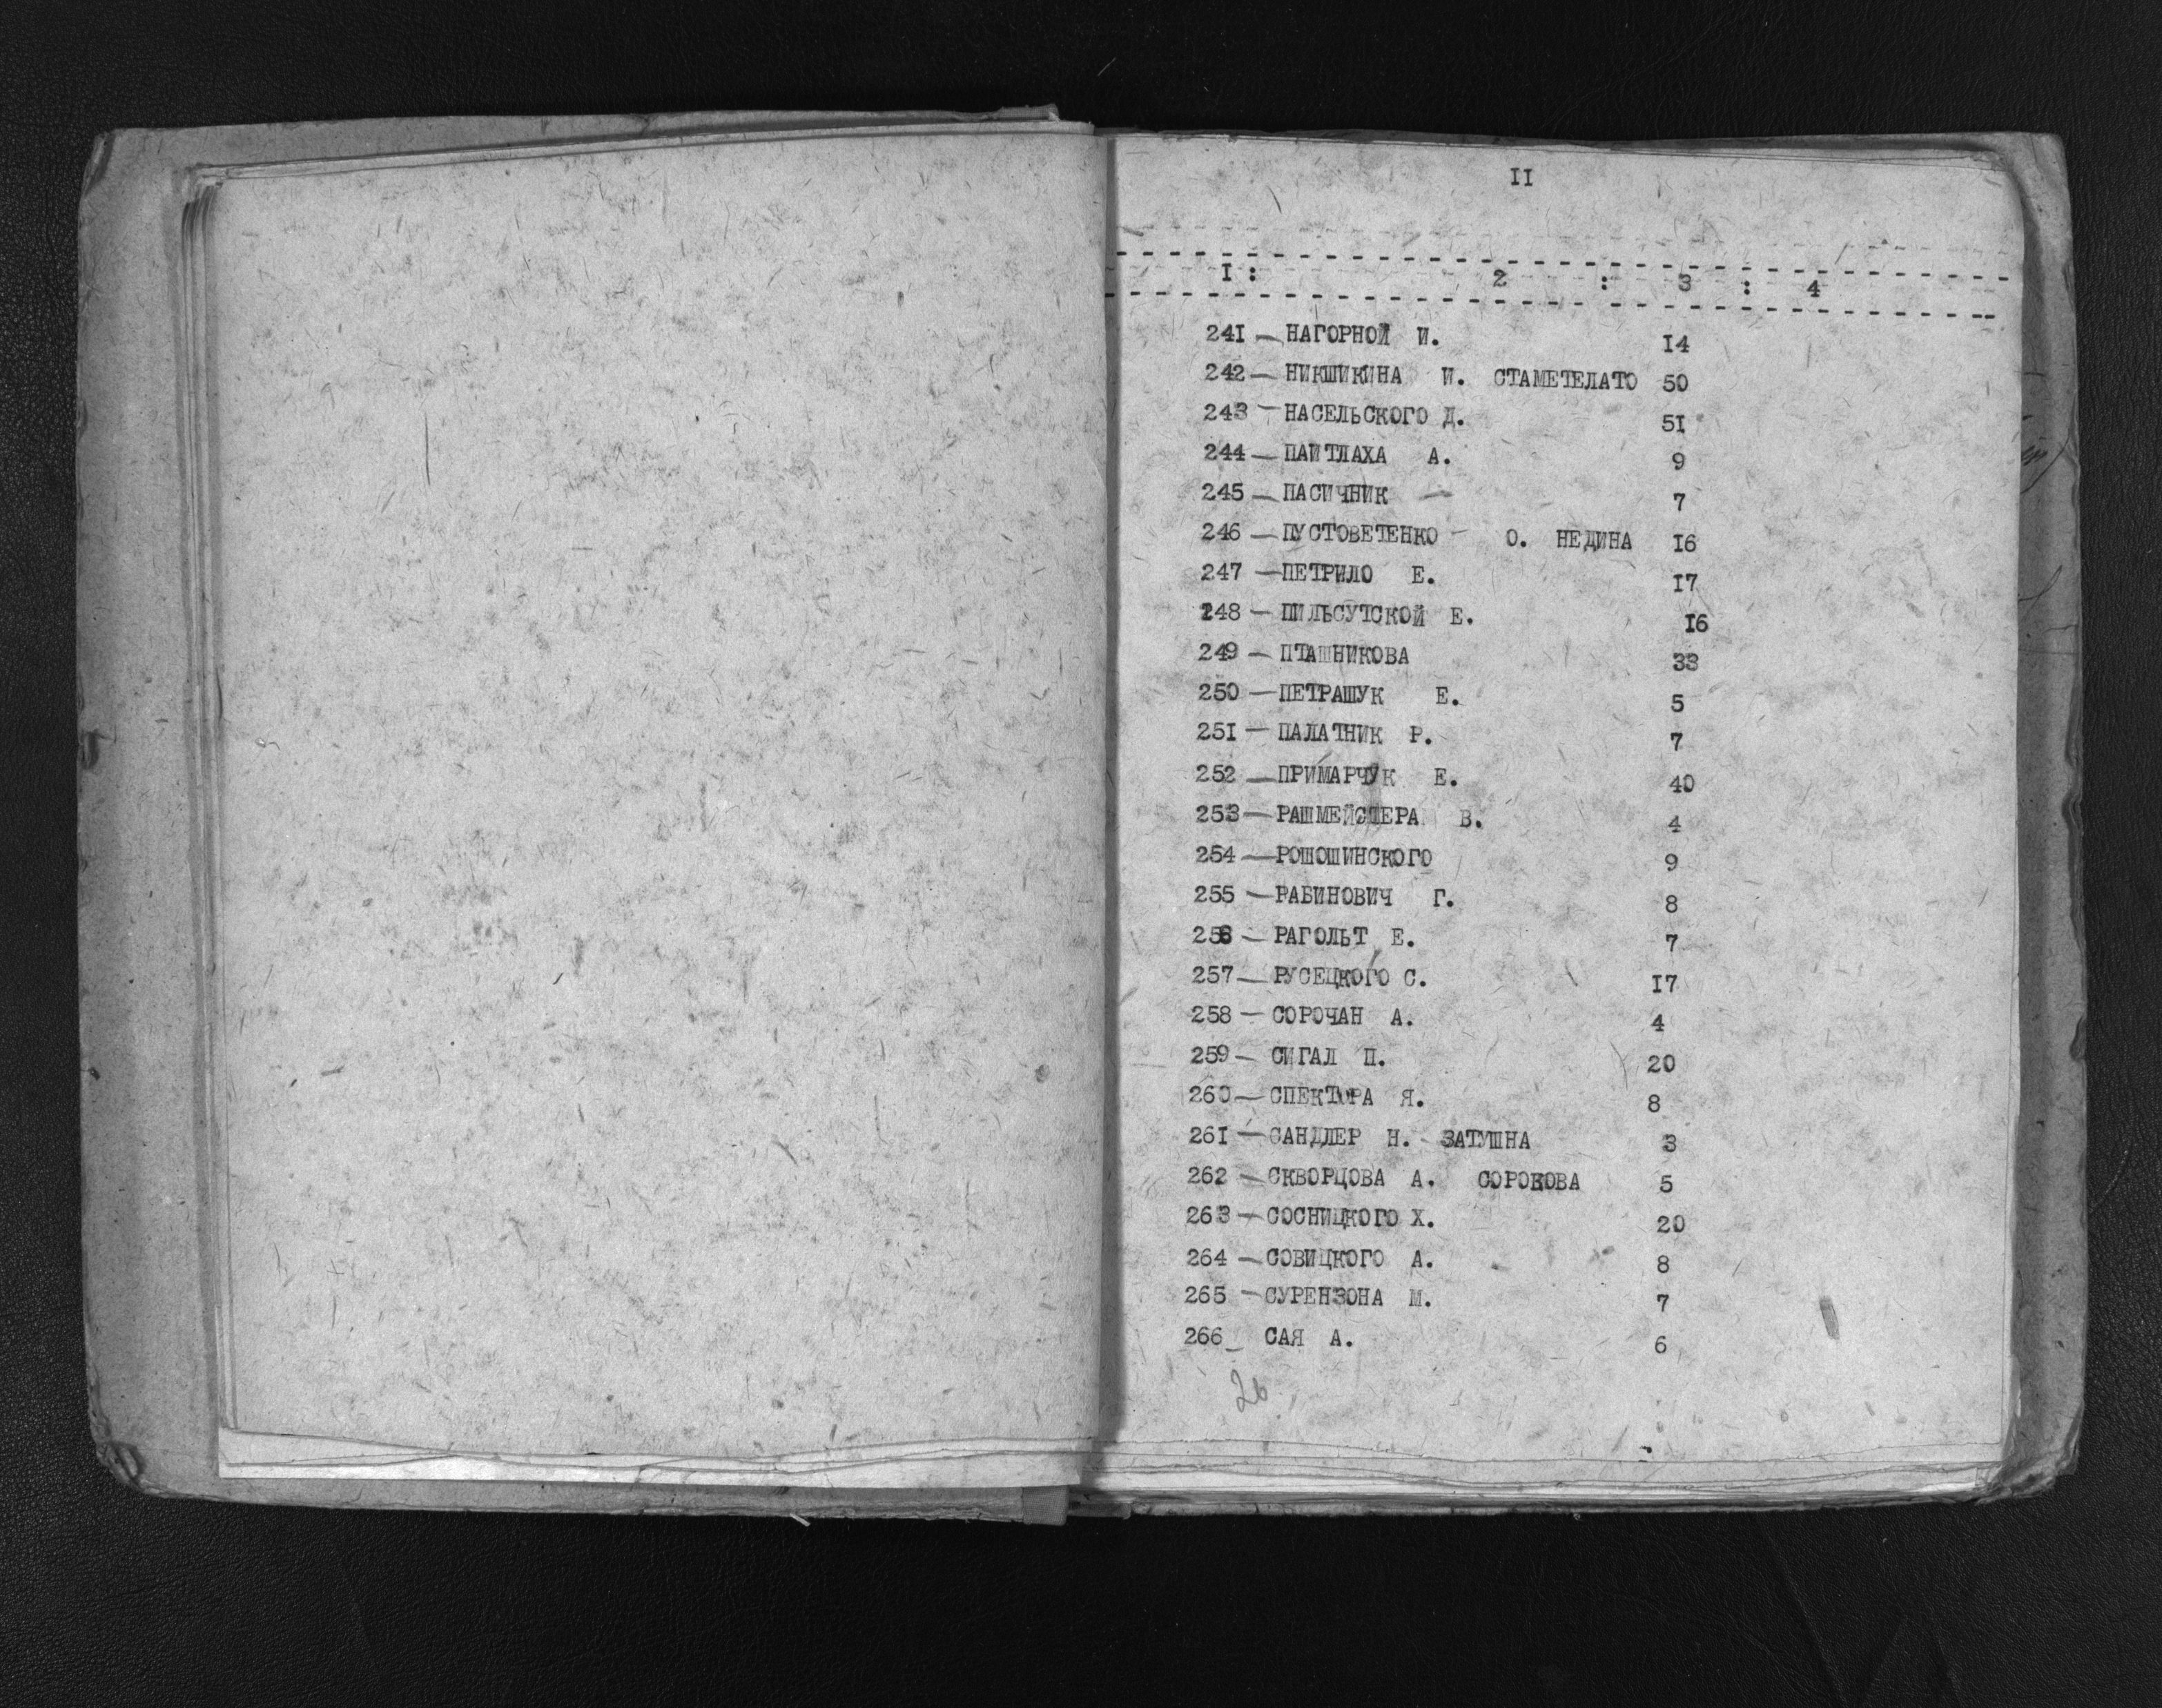 II
I : 2 : 3 : 4
241 — НАГОРНОЙ И. 14
242 — НИКШИКИНА И. СТАМЕТЕЛАТО 50
243 — НАСЕЛЬСКОГО Д. 51
244 — ПАИТЛАХА А. 9
245 — ПАСИЧНИК — 7
246 — ПУСТОВЕТЕНКО — О. НЕДИНА 16
247 — ПЕТРИЛО Е. 17
248 — ПИЛЬСУТСКОЙ Е. 16
249 — ПТАШНИКОВА 33
250 — ПЕТРАШУК Е. 5
251 — ПАЛАТНИК Р. 7
252 — ПРИМАРЧУК Е. 40
253 — РАШМЕЙСТЕРА В. 4
254 — РОШОШИНСКОГО 9
255 — РАБИНОВИЧ Г. 8
256 — РАГОЛЬТ Е. 7
257 — РУСЕЦКОГО С. 17
258 — СОРОЧАН А. 4
259 — СИГАЛ П. 20
260 — СПЕКТОРА Я. 8
261 — САНДЛЕР Н. ЗАТУШНА 3
262 — СКВОРЦОВА А. СОРОКОВА 5
263 — СОСНИЦКОГО Х. 20
264 — СОВИЦКОГО А. 8
265 — СУРЕНЗОНА М. 7
266 _ САЯ А. 6
26